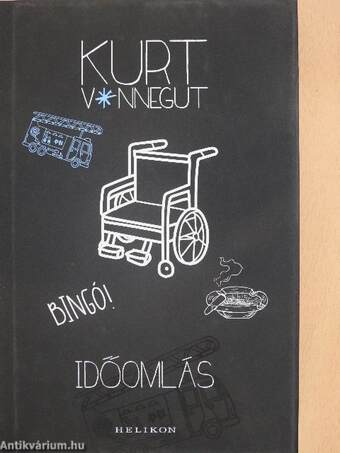 KURT
V*NNEGUT
BINGÓ!
IDŐOMLÁS
HELIKON
Antikvárium.hu